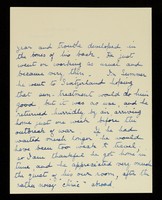 year and trouble developed in
the bones of his back. He just
went on working as usual and
became very thin. In Summer
he went to Switzerland hoping
that sun-treatment would do him
good but it was no use and he
returned hurriedly by air arriving
home just one week before the
outbreak of war. If he had
waited much longer he would
have been too weak to travel,
so I am thankful he got home in
time and he appreciated very much
the quiet of his own room, after the
rather noisy clinic abroad.